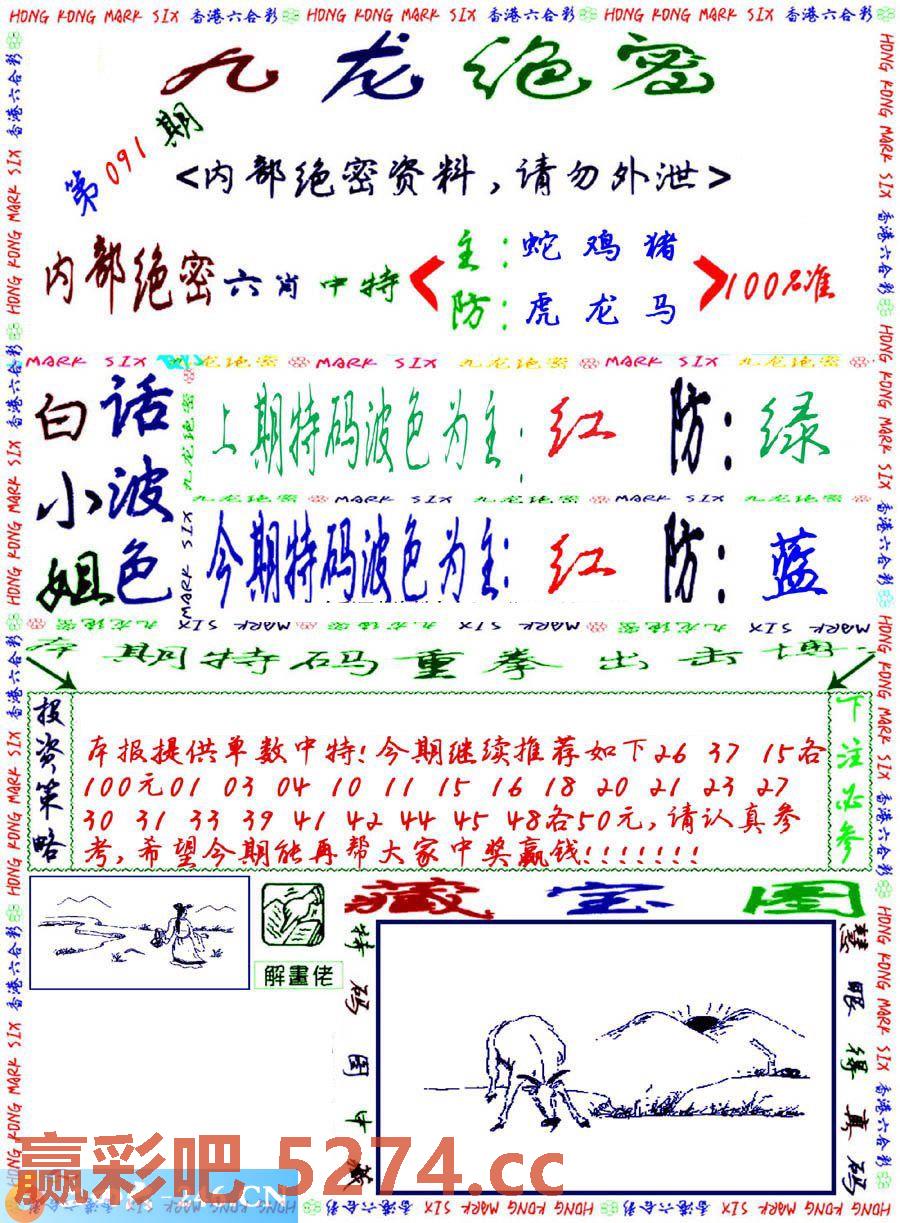 HONG KONG MARK SIX 香港六合彩 HONG KONG MARK SIX 香港六合彩 HONG KONG MARK SIX 香港六合彩
九龙绝密
第091期
<内部绝密资料,请勿外泄>
内部绝密六肖中特
主:蛇鸡猪
防:虎龙马
100%准
MARK SIX 九龙绝密 MARK SIX 九龙绝密 MARK SIX 九龙绝密
白小姐
话波色
上期特码波色为主:红 防:绿
九龙绝密 MARK SIX 九龙绝密 MARK SIX 九龙绝密
今期特码波色为主:红 防:蓝
本期特码重拳出击博
投资策略
本报提供单数中特!今期继续推荐如下26 37 15各
100元01 03 04 10 11 15 16 18 20 21 23 27
30 31 33 39 41 42 44 45 48各50元,请认真参
考,希望今期能再帮大家中奖赢钱!!!!!!!
下注必参
解畫佬
藏宝图
特码图中藏
慧眼得真码
赢彩吧 5274.cc
246.CN